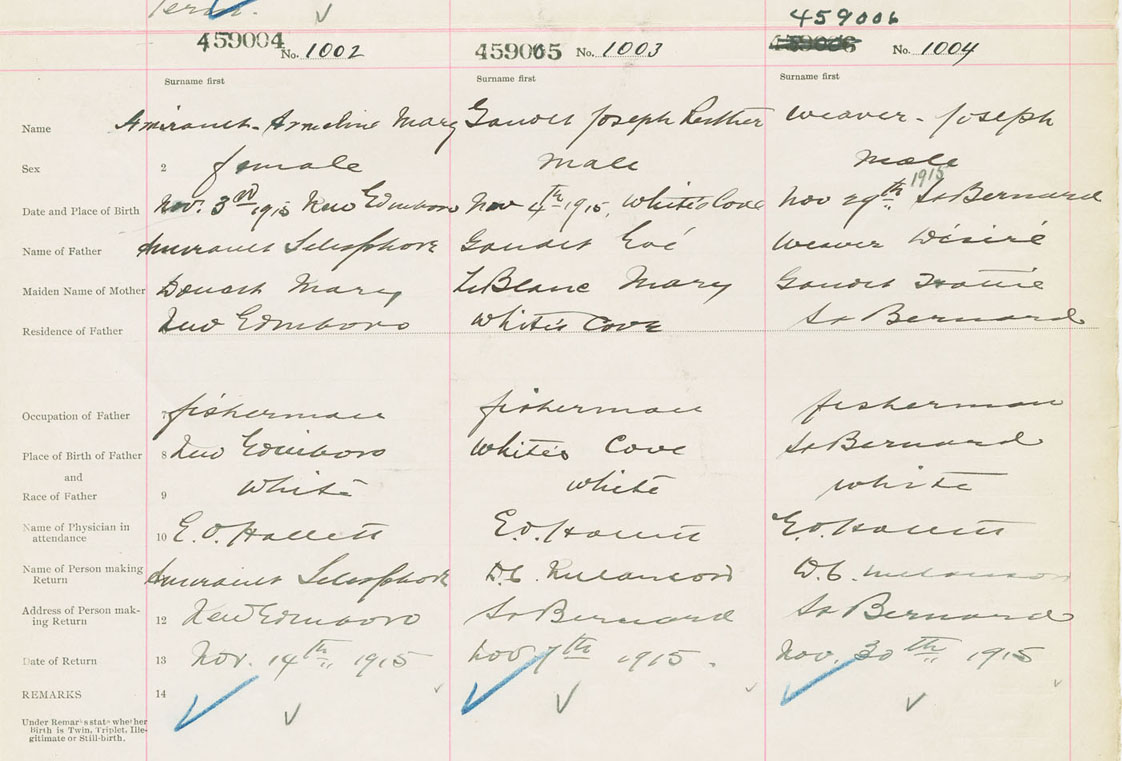 Term.
459004 No. 1002 459005 No. 1003 459006 No. 1004
Surname first Surname first Surname first
Name Amirault - Armeline Mary Gaudet Joseph Weaver - Joseph
Sex 2 female male male
Date and Place of Birth Nov. 3rd 1915 New Edinboro Nov 4th 1915, Whites Cove Nov 29th 1915 St Bernard
Name of Father Amirault Telesphore Gaudet Weaver Désiré
Maiden Name of Mother Doucet Mary LeBlanc Mary Gaudet
Residence of Father New Edinboro Whites Cove St Bernard
Occupation of Father 7 fisherman fisherman fisherman
Place of Birth of Father 8 New Edinboro Whites Cove St Bernard
and
Race of Father 9 White white white
Name of Physician in attendance 10 E.O. Hallett E.O. Hallett E.O. Hallett
Name of Person making Return Amirault Telesphore D.C. Melanson D.C. Melanson
Address of Person making Return 12 New Edinboro St Bernard St Bernard
Date of Return 13 Nov. 14th 1915 Nov 7th 1915. Nov. 30th 1915
REMARKS 14
Under Remarks state whether
Birth is Twin, Triplet, Ille-
gitimate or Still-birth.